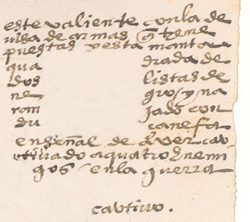 este valiente con la de
uisa de armas q̃ tiene
puestas y esta manta
qua drada de
dos listas de
ne gro, y na
ron jado con
du canefa
en señal de aver cav
tivado a quatro enem
igos en la guerra
cavtivo.